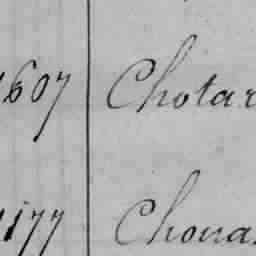 1607 Chotar
1177 Choua